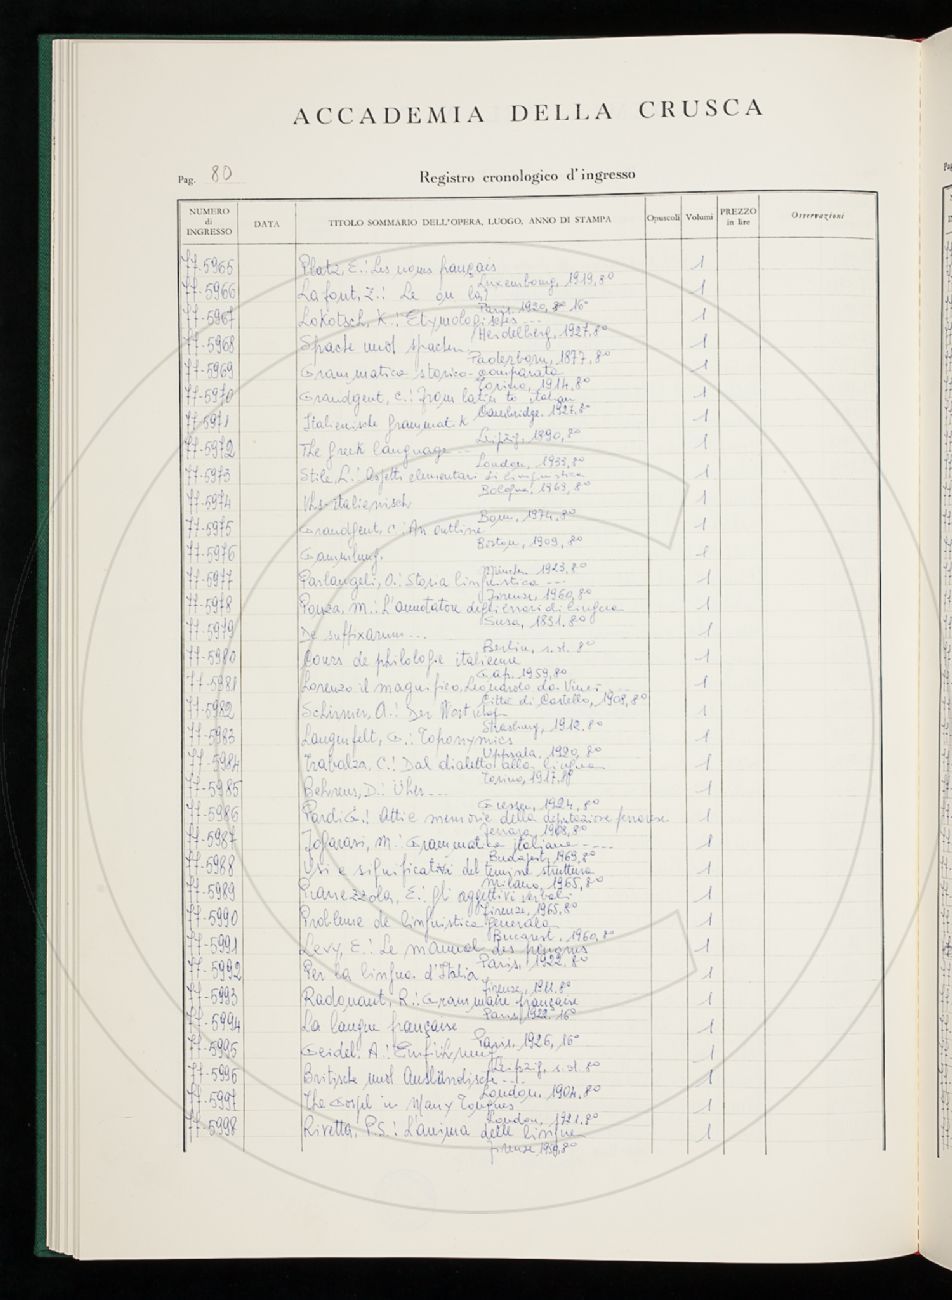 ACCADEMIA DELLA CRUSCA
Pag. 80
Registro cronologico d'ingresso
NUMERO di INGRESSO DATA TITOLO SOMMARIO DELL'OPERA, LUOGO, ANNO DI STAMPA Opuscoli Volumi PREZZO in lire Osservazioni
77-5965 Platz, E.: Les noms français 1
Luxembourg, 1919, 8°
77-5966 Lafont, Z.: Le ou la? 1
Paris, 1920, 16°
77-5967 Lokotsch, K.: Etymologisches 1
Heidelberg, 1927, 8°
77-5968 Spache und spachen 1
Paderborn, 1877, 8°
77-5969 Grammatica storico-comparata 1
Torino, 1914, 8°
77-5970 Grandgent, C.: From latin to italian 1
Cambridge, 1927, 8°
77-5971 Italienische Grammatik 1
Leipzig, 1890, 8°
77-5972 The greek language 1
London, 1933, 8°
77-5973 Stile, L.: Aspetti elementari di linguistica 1
Bologna, 1969, 8°
77-5974 Vhs-italienisch 1
Bonn, 1974, 8°
77-5975 Grandgent, C.: An outline 1
Boston, 1909, 8°
77-5976 1
München 1923, 8°
77-5977 Parlangeli, O.: Storia linguistica --- 1
Firenze, 1960, 8°
77-5978 Ponza, M.: L'annotatore degli errori di lingua 1
Susa, 1831, 8°
77-5979 De suffixarum... 1
Berlin, s.d. 8°
77-5980 Cours de philologie italienne 1
Gap, 1959, 8°
77-5981 Lorenzo il magnifico, Leonardo da Vinci 1
Città di Castello, 1908, 8°
77-5982 Schirmer, A.: Der Wortschatz 1
Strasburg, 1912, 8°
77-5983 Langenfelt, G.: Toponymics 1
Uppsala, 1920, 8°
77-5984 Trabalza, C.: Dal dialetto alla lingua 1
Torino, 1917, 8°
77-5985 Behrens, D.: Uber... 1
Giessen, 1924, 8°
77-5986 Pardi G.: Atti e memorie della deputazione ferrarese 1
Ferrara, 1908, 8°
77-5987 Fogarasi, M.: Grammatica italiana --- 1
Budapest, 1969, 8°
77-5988 Usi e significati del termine struttura 1
Milano, 1965, 8°
77-5989 E.: Gli aggettivi verbali 1
Firenze, 1965, 8°
77-5990 Probleme de linguistica generala 1
Bucarest, 1960, 8°
77-5991 Levy, E.: Le manuel des 1
Paris, 1922, 8°
77-5992 Per la lingua d'Italia 1
Firenze, 1911, 8°
77-5993 Radouant, R.: Grammaire française 1
Paris, 1922, 16°
77-5994 La langue française 1
Paris, 1926, 16°
77-5995 Geidel, A.: Einführung 1
Leipzig, s.d. 8°
77-5996 Britische und Ausländische --- 1
London, 1904, 8°
77-5997 The Gospel in Many Tongues 1
London, 1921, 8°
77-5998 Rivetta, P.S.: L'anima delle lingue 1
Firenze 1939, 8°